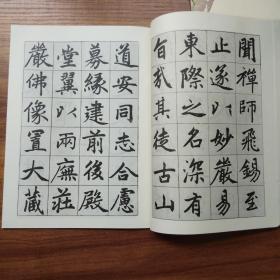 聞禪師飛錫至
止遂以妙嚴易
東際之名深有
旨哉其徒古山
道安同志合慮
募緣建前後殿
堂翼以兩廡莊
嚴佛像置大藏